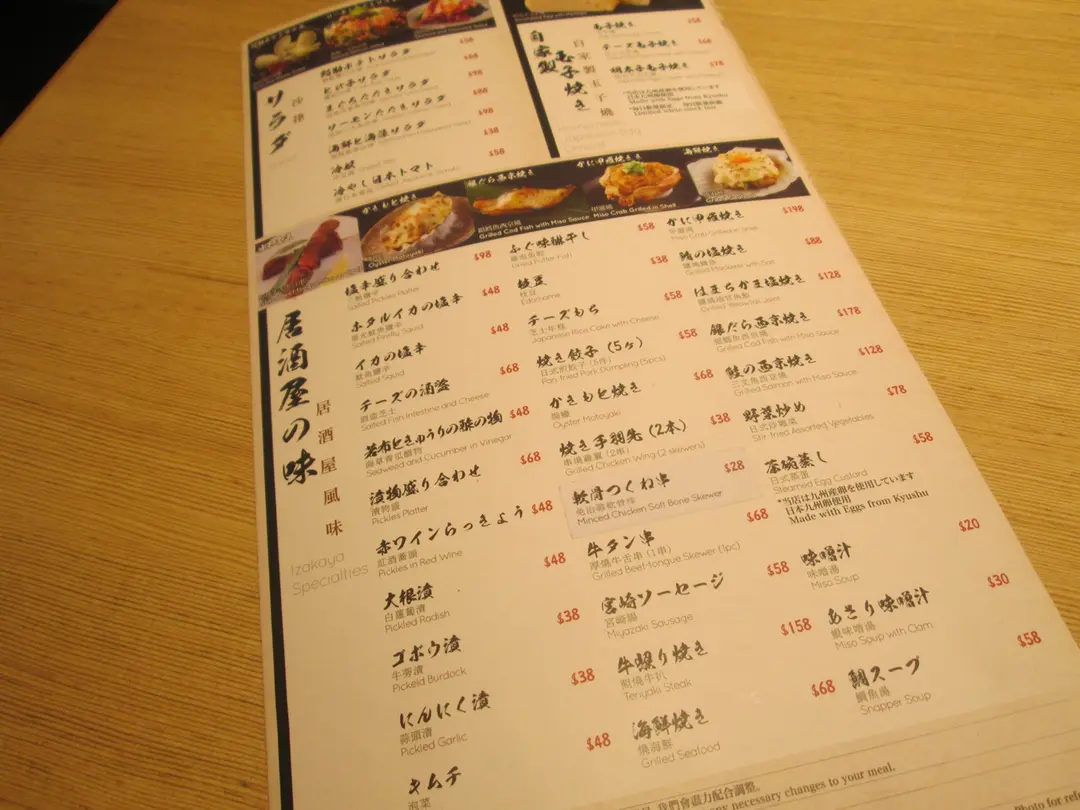 リラダ
沙律
鶏動ポテトサラダ
$58
$68
まぐろたたきサラダ
$98
サーモンたたきサラダ
$88
海鮮と海藻サラダ
$98
冷奴
$38
冷やし日本トマト
$58
自家製
玉子焼き
自家製玉子燒
玉子焼き
$58
チーズ玉子焼き
$68
明太子玉子焼き
$78
*当店は九州産卵を使用しています
日本九州卵使用
Made with Eggs from Kyushu
Limited while stock last
かきもと焼き
Oyster Motoyaki
銀だら西京焼き
銀鱈魚西京燒
Grilled Cod Fish with Miso Sauce
かに甲羅焼き
甲羅燒
Miso Crab Grilled in Shell
海鮮焼き
居酒屋の味
居酒屋風味
Izakaya
Specialties
塩辛盛り合わせ
$98
Salted Pickles Platter
ホタルイカの塩辛
$48
螢光魷魚鹽辛
Salted Firefly Squid
イカの塩辛
$48
魷魚鹽辛
Salted Squid
チーズの酒盗
$68
酒盜芝士
Salted Fish Intestine and Cheese
若布ときゅうりの酢の物
$48
海草青瓜醋物
Seaweed and Cucumber in Vinegar
漬物盛り合わせ
$68
漬物盛
Pickles Platter
赤ワインらっきょう
$48
紅酒蕎頭
Pickles in Red Wine
大根漬
$48
白蘿蔔漬
Pickled Radish
ゴボウ漬
$38
牛蒡漬
Pickeld Burdock
にんにく漬
$38
蒜頭漬
Pickled Garlic
キムチ
$48
泡菜
ふぐ味醂干し
$58
Dried Puffer Fish
枝豆
$38
枝豆
Edamame
チーズもち
$58
芝士年糕
Japanese Rice Cake with Cheese
焼き餃子 (5ヶ)
$58
日式煎餃子 (5件)
Pan-fried Pork Dumpling (5pcs)
かきもと焼き
$68
燒蠔
Oyster Motoyaki
焼き手羽先 (2本)
$38
串燒雞翼 (2串)
Grilled Chicken Wing (2 skewers)
軟骨つくね串
$28
免治雞軟骨串
Minced Chicken Soft Bone Skewer
牛タン串
$68
厚燒牛舌串 (1串)
Grilled Beef-tongue Skewer (1pc)
宮崎ソーセージ
$58
宮崎腸
Miyazaki Sausage
牛照り焼き
$158
照燒牛扒
Teriyaki Steak
海鮮焼き
$68
燒海鮮
Grilled Seafood
かに甲羅焼き
$198
甲羅燒
Miso Crab Grilled in Shell
鯖の塩焼き
$88
鹽燒鯖魚
Grilled Mackerel with Salt
はまちかま塩焼き
$128
Grilled Yellowtail Joint
銀だら西京焼き
$178
銀鱈魚西京燒
Grilled Cod Fish with Miso Sauce
鮭の西京焼き
$128
三文魚西京燒
Grilled Salmon with Miso Sauce
野菜炒め
$78
日式炒雜菜
Stir-fried Assorted Vegetables
茶碗蒸し
$58
日式蒸蛋
Steamed Egg Custard
*当店は九州産卵を使用しています
日本九州卵使用
Made with Eggs from Kyushu
味噌汁
$20
味噌湯
Miso Soup
あさり味噌汁
$30
蜆味噌湯
Miso Soup with Clam
鯛スープ
$58
鯛魚湯
Snapper Soup
我們會盡力配合調整。
any necessary changes to your meal.
Photo for refe